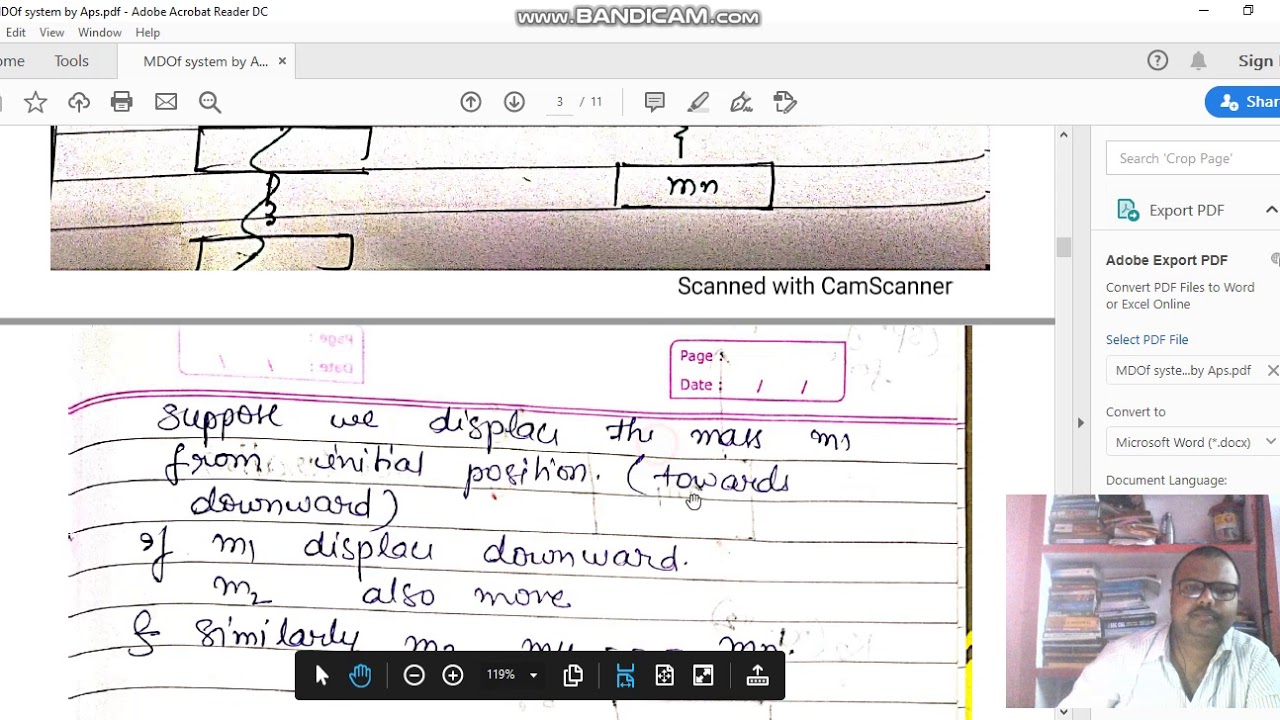 MDOf system by Aps.pdf - Adobe Acrobat Reader DC
www.BANDICAM.com
Edit View Window Help
ome Tools MDOf system by A... ×
Sign
3 / 11
Shar
mn
Search 'Crop Page'
Export PDF
Adobe Export PDF
Convert PDF Files to Word
or Excel Online
Select PDF File
MDOf syste...by Aps.pdf
Convert to
Microsoft Word (*.docx)
Document Language:
Scanned with CamScanner
Page :
Date : / /
suppose we displace the mass m1
from initial position. (towards
downward)
If m1 displace downward.
m2 also move
& similarly
119%